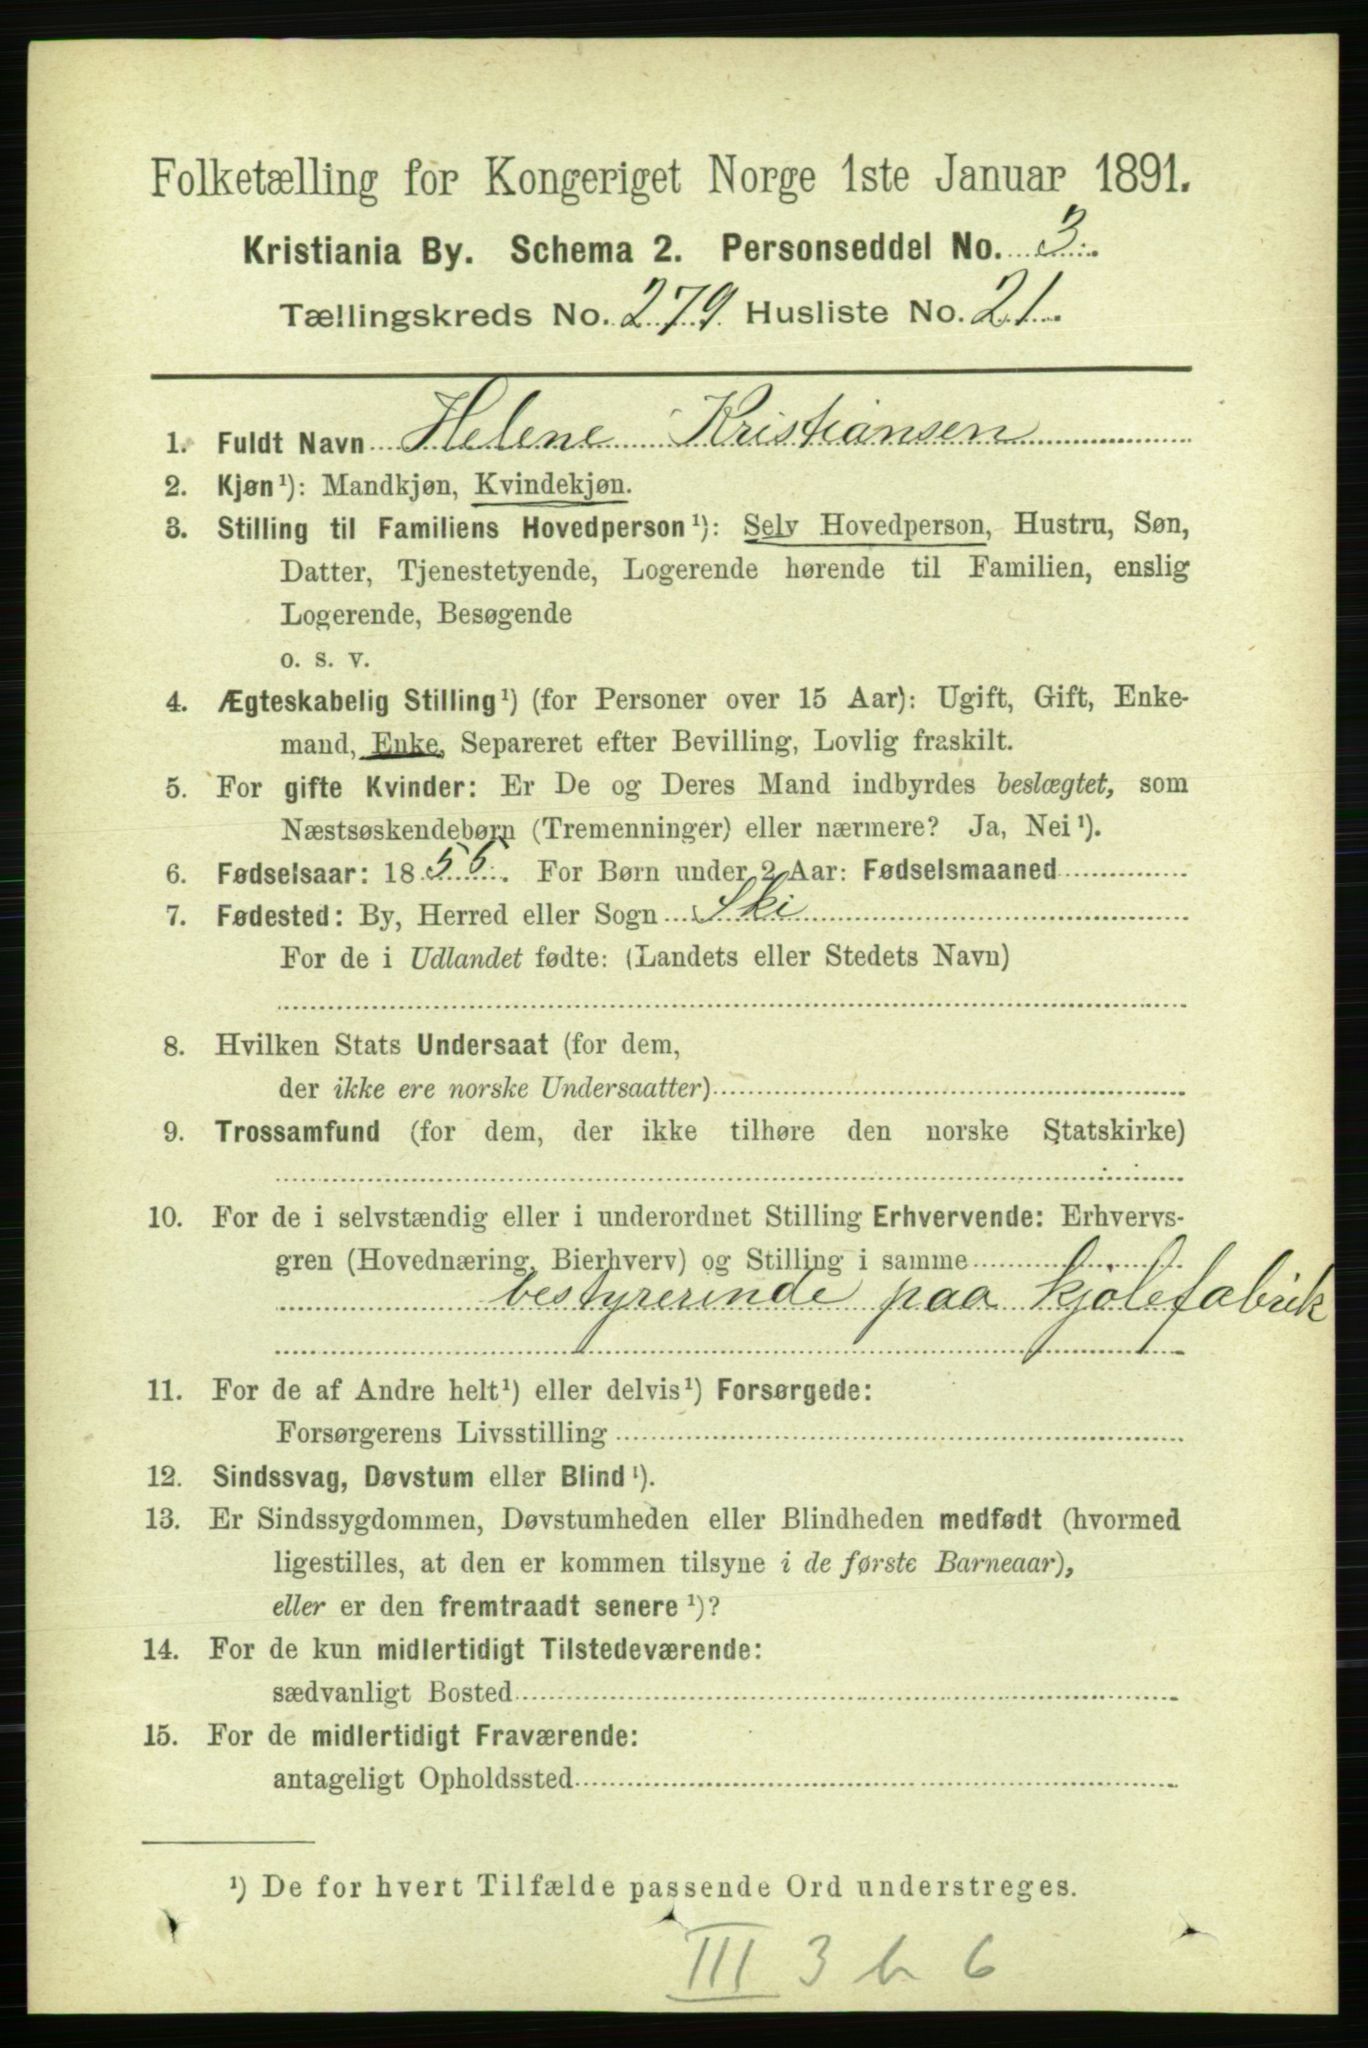 Folketælling for Kongeriget Norge 1ste Januar 1891.
Kristiania By. Schema 2. Personseddel No. 3.
Tællingskreds No. 279 Husliste No. 21.
1. Fuldt Navn Helene Kristiansen
2. Kjøn¹): Mandkjøn, Kvindekjøn.
3. Stilling til Familiens Hovedperson¹): Selv Hovedperson, Hustru, Søn,
Datter, Tjenestetyende, Logerende hørende til Familien, enslig
Logerende, Besøgende
o. s. v.
4. Ægteskabelig Stilling¹) (for Personer over 15 Aar): Ugift, Gift, Enke-
mand, Enke, Separeret efter Bevilling, Lovlig fraskilt.
5. For gifte Kvinder: Er De og Deres Mand indbyrdes beslægtet, som
Næstsøskendebørn (Tremenninger) eller nærmere? Ja, Nei¹).
6. Fødselsaar: 1856. For Børn under 2 Aar: Fødselsmaaned
7. Fødested: By, Herred eller Sogn Ski
For de i Udlandet fødte: (Landets eller Stedets Navn)
8. Hvilken Stats Undersaat (for dem,
der ikke ere norske Undersaatter)
9. Trossamfund (for dem, der ikke tilhøre den norske Statskirke)
10. For de i selvstændig eller i underordnet Stilling Erhvervende: Erhvervs-
gren (Hovednæring, Bierhverv) og Stilling i samme
bestyrerinde paa kjolefabrik
11. For de af Andre helt¹) eller delvis¹) Forsørgede:
Forsørgerens Livsstilling
12. Sindssvag, Døvstum eller Blind¹).
13. Er Sindssygdommen, Døvstumheden eller Blindheden medfødt (hvormed
ligestilles, at den er kommen tilsyne i de første Barneaar),
eller er den fremtraadt senere¹)?
14. For de kun midlertidigt Tilstedeværende:
sædvanligt Bosted
15. For de midlertidigt Fraværende:
antageligt Opholdssted
¹) De for hvert Tilfælde passende Ord understreges.
III 3 b 6